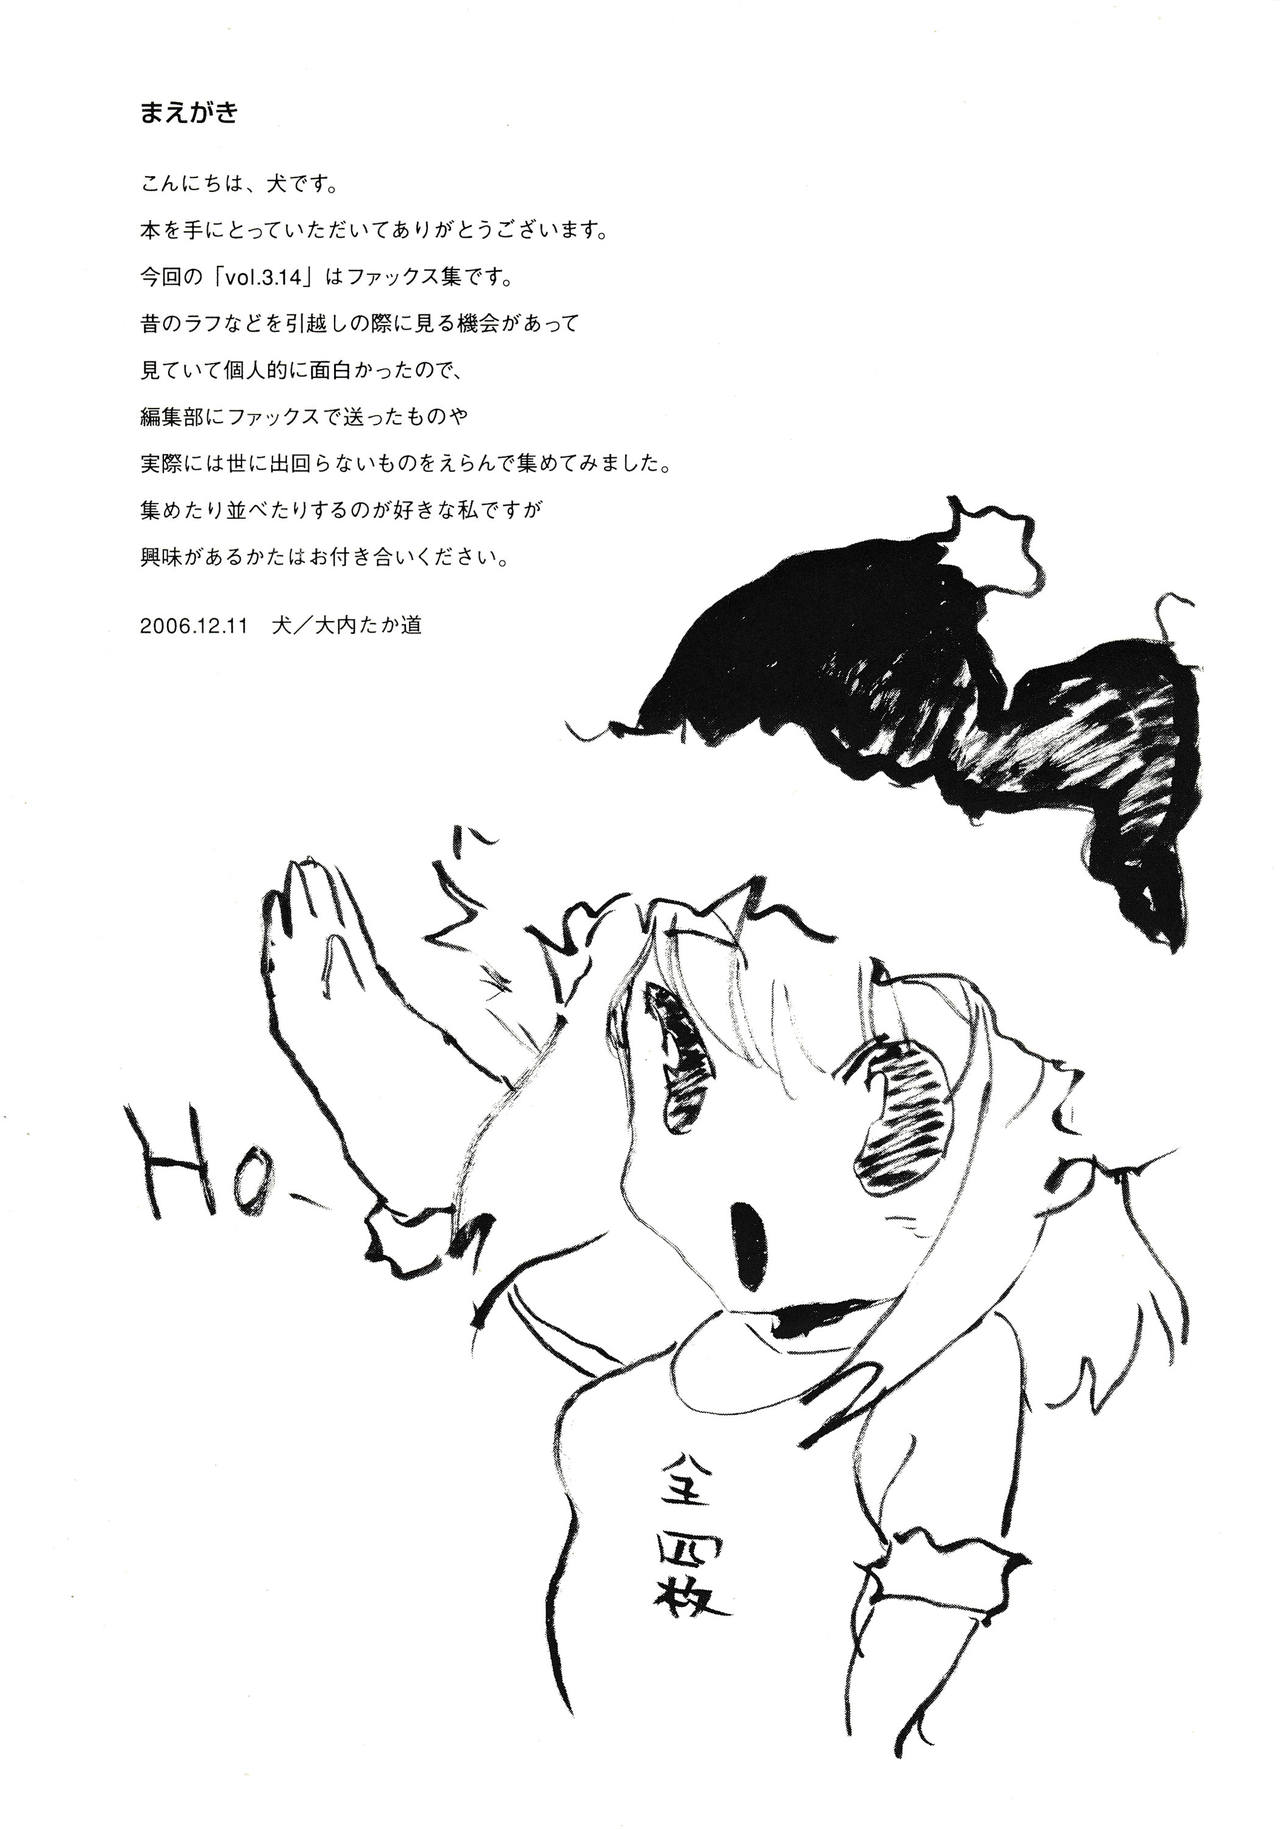 まえがき
こんにちは、犬です。
本を手にとっていただいてありがとうございます。
今回の「vol.3.14」はファックス集です。
昔のラフなどを引越しの際に見る機会があって
見ていて個人的に面白かったので、
編集部にファックスで送ったものや
実際には世に出回らないものをえらんで集めてみました。
集めたり並べたりするのが好きな私ですが
興味があるかたはお付き合いください。
2006.12.11　犬／大内たか道
Ho-
全四枚